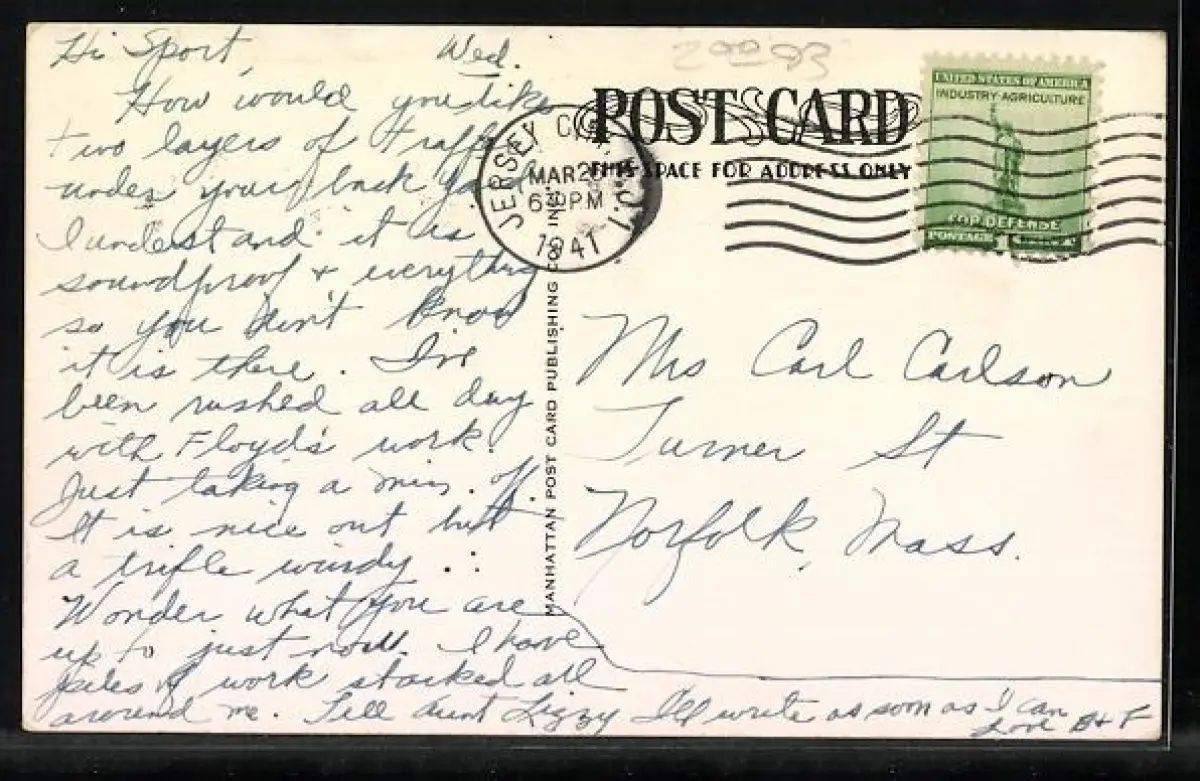 Hi Sport, Wed.
How would you like
two layers of traffic
under your back yard
I understand it is
soundproof & everything
so you don't know
it is there. I've
been rushed all day
with Floyd's work.
Just taking a min. off.
It is nice out but
a trifle windy . . .
Wonder what you are
up to just now. I have
piles of work stacked all
around me. Tell Aunt Lizzy I'll write as soon as I can
Love B + F
POST CARD
THIS SPACE FOR ADDRESS ONLY
JERSEY CITY N.J.
MAR
PM
1941
UNITED STATES OF AMERICA
INDUSTRY·AGRICULTURE
FOR DEFENSE
POSTAGE
MANHATTAN POST CARD PUBLISHING CO. INC.
Mrs Carl Carlson
Turner St
Norfolk, Mass.